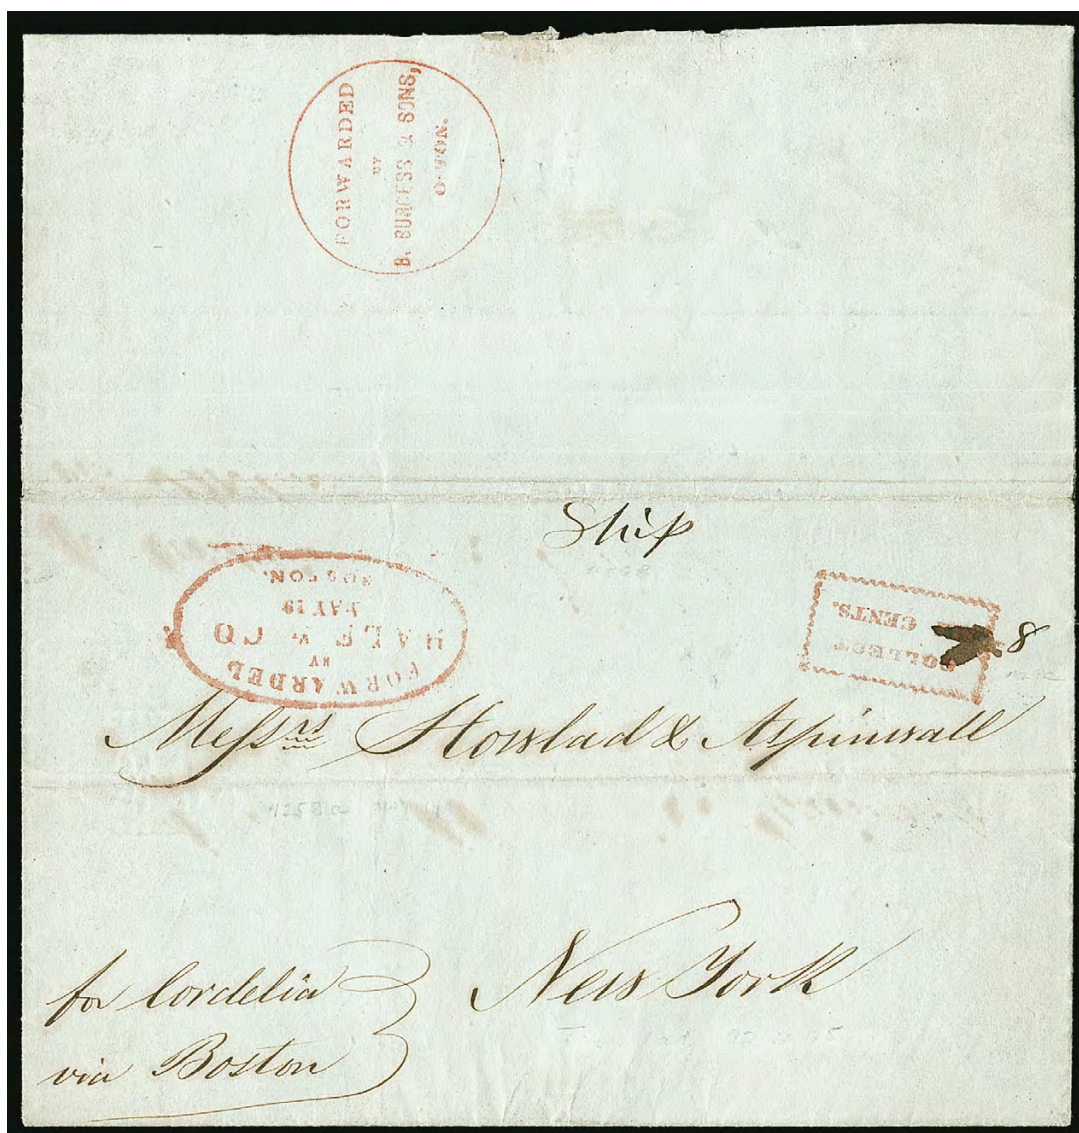 FORWARDED
BY
B. BURGESS & SONS,
Ship
FORWARDED
BY
HALE & CO
MAY 19
BOSTON.
COLLECT
CENTS.
8
Messrs Howlad & Aspinwall
New York
for Cordelia
via Boston